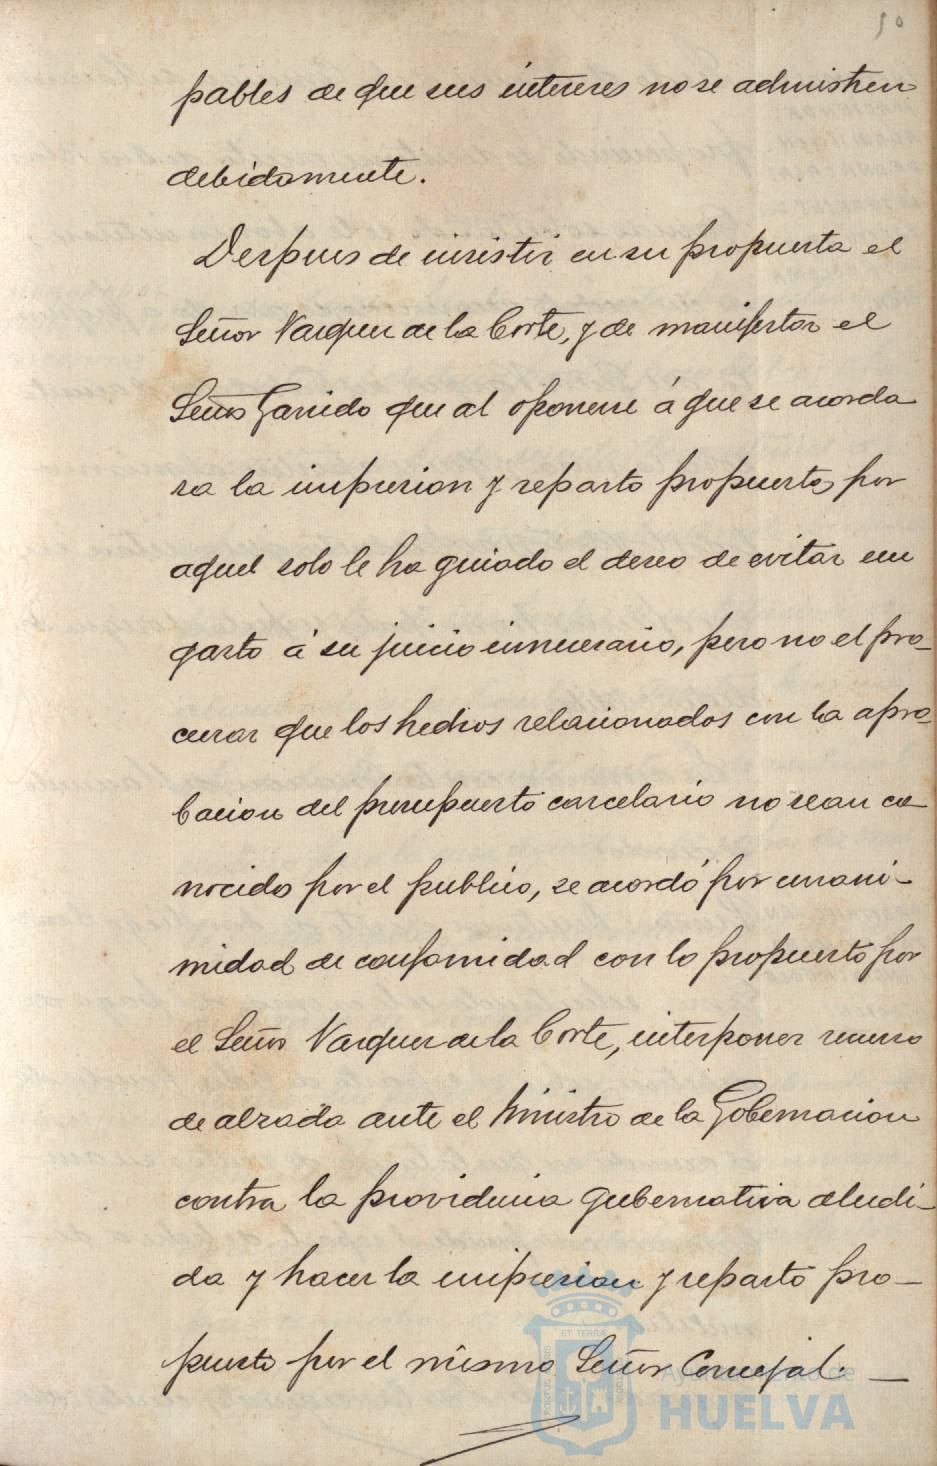 50
pables de que sus intereses no se administren
debidamente.
Despues de insistir en su propuesta el
Señor Vazquez de la Corte, y de manifestar el
Señor Garrido que al oponerse á que se acorda
ra la impresion y reparto propuesto por
aquel solo le ha guiado el deseo de evitar un
gasto á su juicio innecesario, pero no el pro-
curar que los hechos relacionados con la apro-
bacion del presupuesto carcelario no sean co-
nocidos por el publico, se acordó por unani-
midad de conformidad con lo propuesto por
el Señor Vazquez de la Corte, interponer recurso
de alzada ante el Ministro de la Gobernacion
contra la providencia gubernativa aludi-
da y hacer la impresion y reparto pro-
puesto por el mismo Señor Concejal. —
ET TERRÆ
Ayuntamiento de
HUELVA